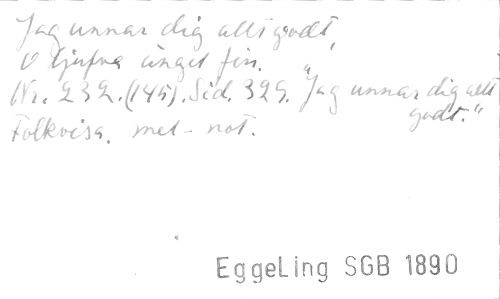 Jag unnar dig allt godt,
O ljufva ängel fin.
Nr. 232. (145). Sid. 329. "Jag unnar dig allt
godt."
Folkvisa. met-not.
Eggeling SGB 1890